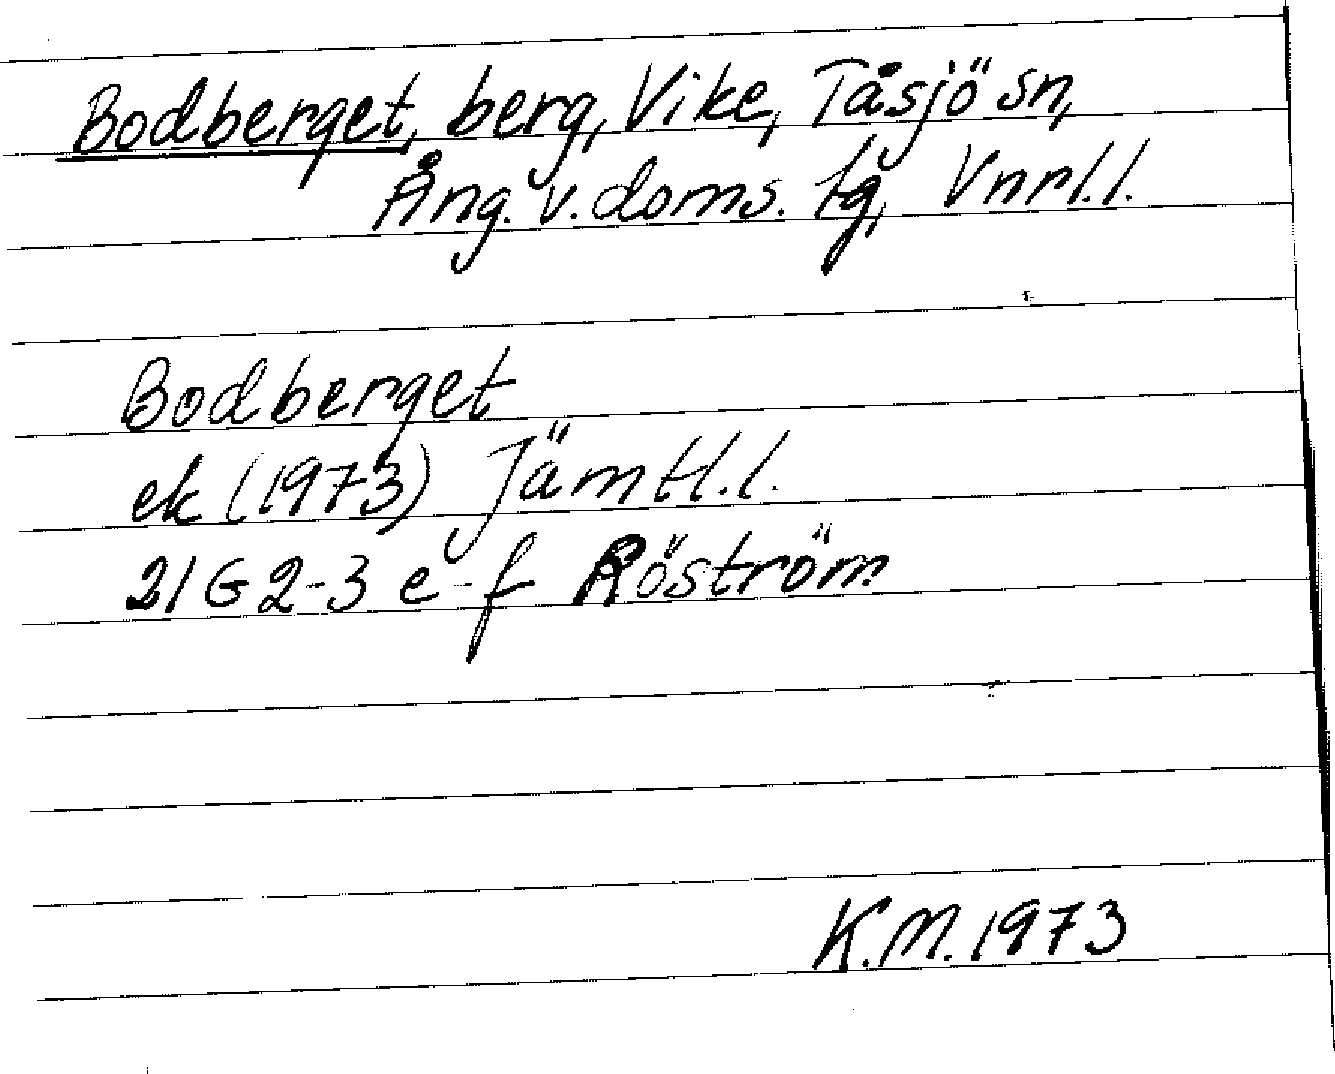 Bodberget, berg, Vike, Tåsjö sn,
Ång. v. doms. tg, Vnrl. l.
Bodberget
ek (1973) Jämtl. l.
21G 2-3 e-f Röström
K.M. 1973